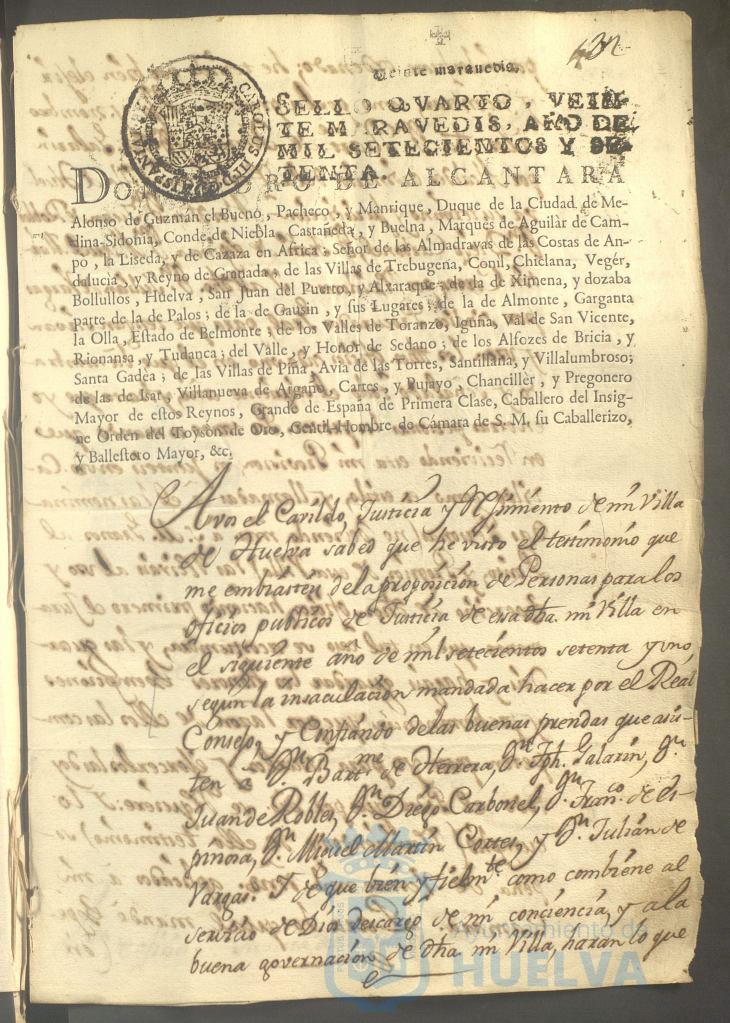 432
Veinte maravedis.
SELLO QVARTO, VEIN-
TE MARAVEDIS, AÑO DE
MIL SETECIENTOS Y SE-
TENTA.
DON PEDRO DE ALCANTARA
Alonso de Guzmán el Bueno, Pacheco, y Manrique, Duque de la Ciudad de Me-
dina-Sidonia, Conde de Niebla, Castañeda, y Buelna, Marqués de Aguilàr de Cam-
po, la Liseda, y de Cazaza en Africa; Señor de las Almadravas de las Costas de An-
dalucìa, y Reyno de Granada; de las Villas de Trebugena, Conil, Chiclana, Vegér,
Bollullos, Huelva, San Juan del Puerto, y Alxaraque; de la de Ximena, y dozaba
parte de la de Palos; de la de Gausin, y sus Lugares; de la de Almonte, Garganta
la Olla, Estado de Belmonte; de los Valles de Toranzo, Iguña, Val de San Vicente,
Rionansa, y Tudanca; del Valle, y Honor de Sedano; de los Alfozes de Bricia, y
Santa Gadèa; de las Villas de Piña, Avia de las Torres, Santillana, y Villalumbroso;
de las de Isar, Villanueva de Argaño, Cartes, y Pujayo, Chancillèr, y Pregonero
Mayor de estos Reynos, Grande de España de Primera Clase, Caballero del Insig-
ne Orden del Toysón de Oro, Gentil-Hombre de Cámara de S. M. su Caballerizo,
y Ballestero Mayor, &c.
Avos el Cavildo, Justicia y Regimiento de mi Villa
de Huelva sabed que he visto el testimonio que
me embiasteis de la proposición de Personas para los
oficios publicos de Justicia de esa dha. mi Villa en
el siguiente año de mil setecientos setenta y uno
segun la insaculación mandada hacer por el Real
Consejo, y Confiando de las buenas prendas que asis-
ten a Dn. Bartme. de Herrera, Dn. Jph. Galarin, Dn.
Juan de Robles, Dn. Diego Carbonel, Dn. Franco. de Es-
pinosa, Dn. Miguel Martin Cortes, y Dn. Julián de
Vargas. Y de que bien, y fielmte. como combiene al
servicio de Dios descargo de mi conciencia, y a la
buena governación de dha. mi Villa, harán lo que
Ayuntamiento de
HUELVA